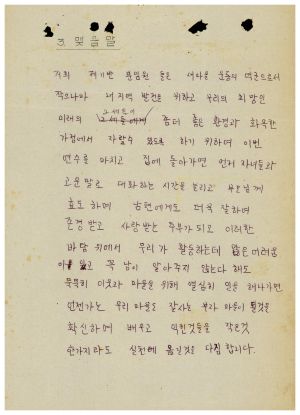 3. 맺음말
저희 저기반 분임원 들은 새마을 운동의 역군으로서
작으나마 내 지역 발전을 위하고 우리의 희망인
미래의 2세들이 좀더 좋은 환경과 화목한
가정에서 자랄수 있도록 하기 위하여 이번
연수를 마치고 집에 돌아가면 먼저 자녀들과
고운말로 대화하는 시간을 늘리고 부모님께
효도 하며 남편에게도 더욱 잘하여
존경 받고 사랑받는 주부가 되고 이러한
바탕 위에서 우리가 활동하는데 많은 어려움
이 있고 꼭 남이 알아주지 않는다 해도
묵묵히 이웃과 마을을 위해 열심히 일을 해나가면
언젠가는 우리 마을도 잘사는 부자 마을이 될것을
확신하며 배우고 익힌것들을 작은것
한가지라도 실천에 옮길것을 다짐 합니다.